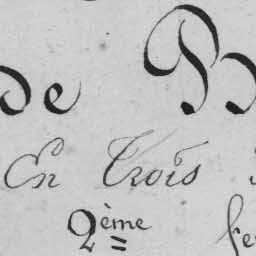 de B
En Trois
2ème fe